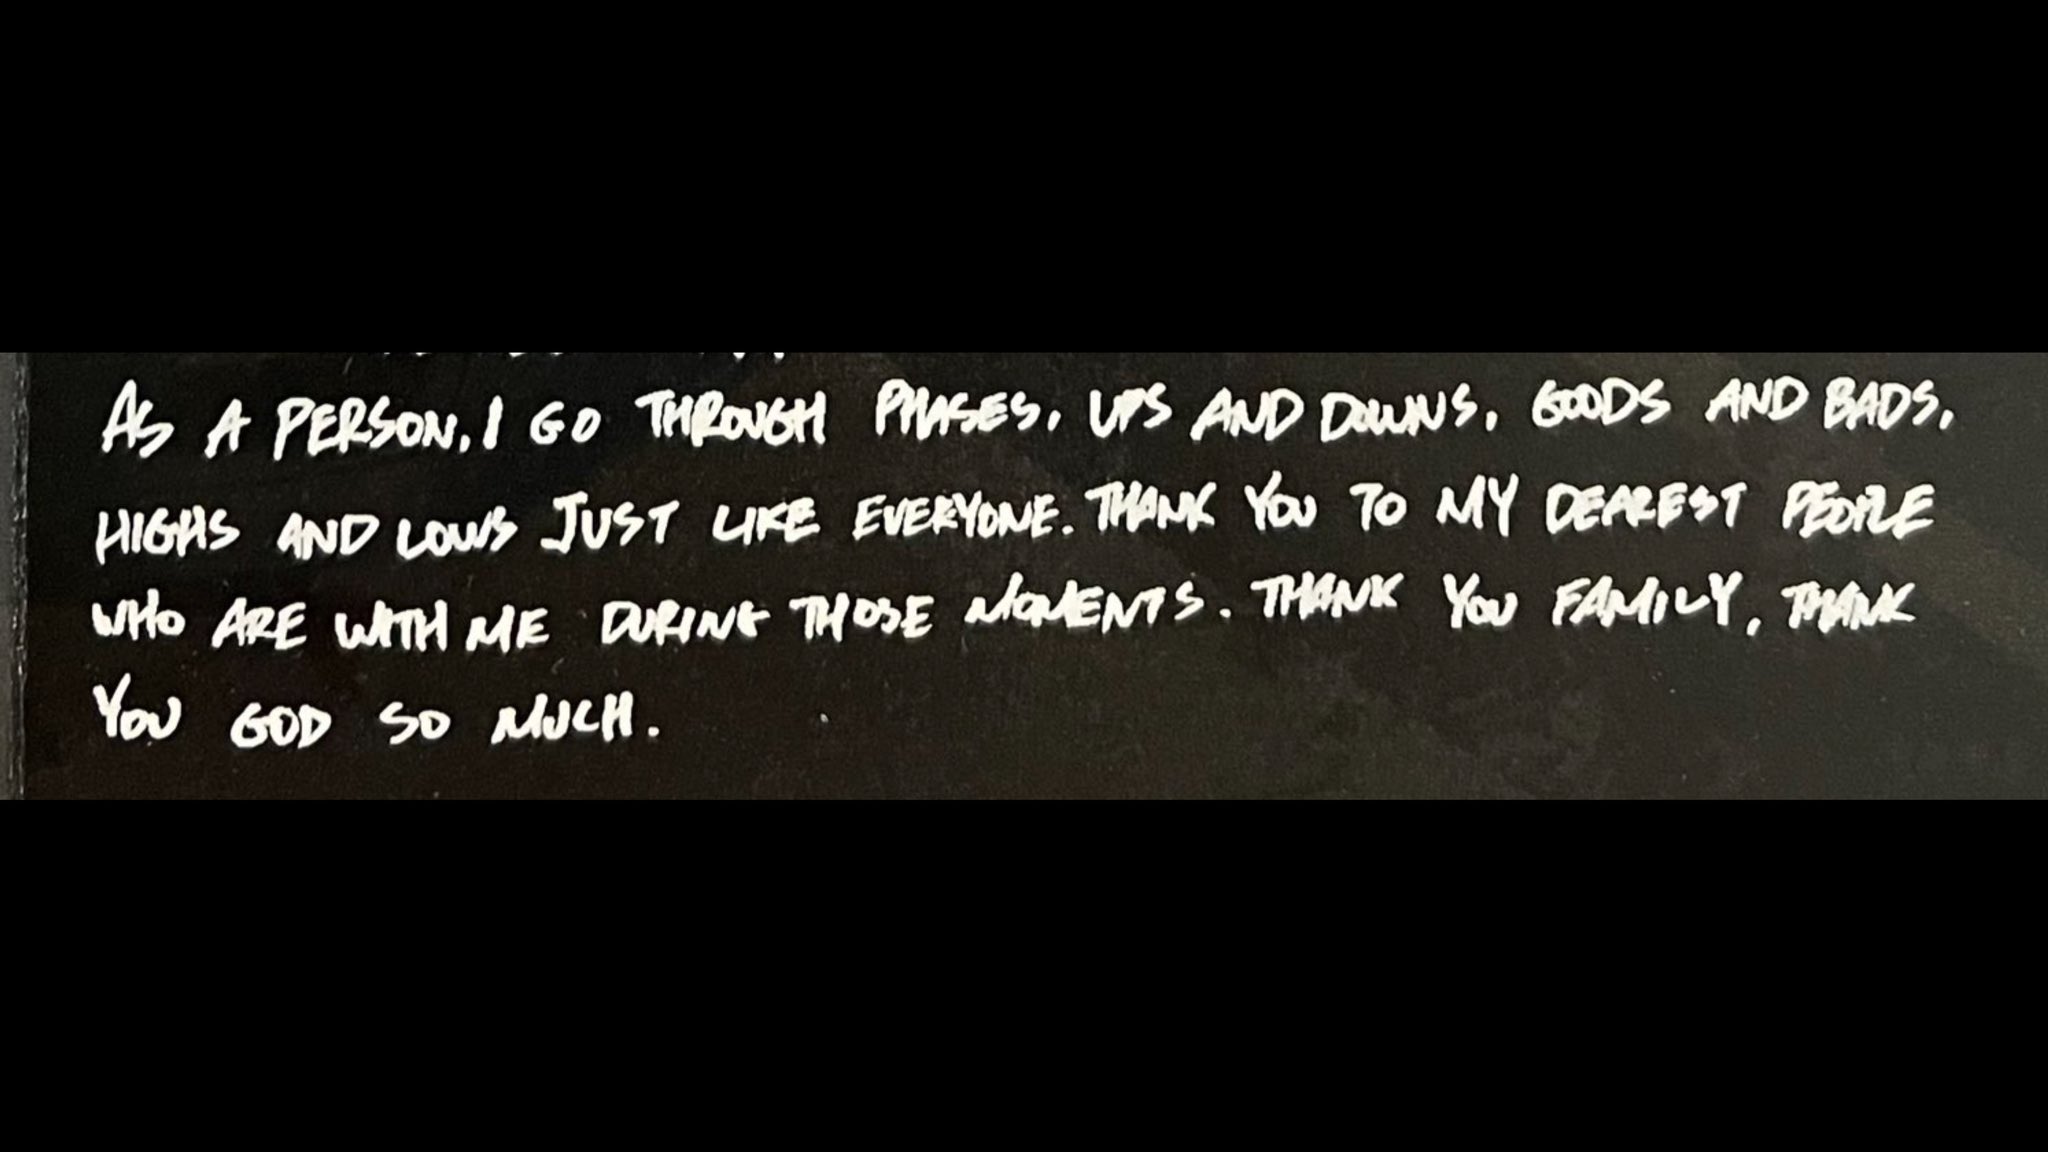 AS A PERSON, I GO THROUGH PHASES, UPS AND DOWNS, GOODS AND BADS,
HIGHS AND LOWS JUST LIKE EVERYONE. THANK YOU TO MY DEAREST PEOPLE
WHO ARE WITH ME DURING THOSE MOMENTS. THANK YOU FAMILY, THANK
YOU GOD SO MUCH.